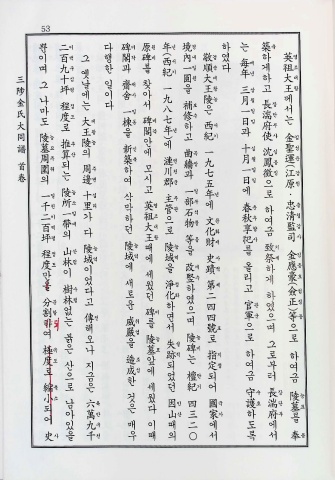 53
英祖大王에서는 金聖運(江原・忠清監司 金應豪(僉正)等으로 하여금 陵墓를 奉
築하게하고 長湍府使 沈鳳徵으로 하여금 致祭하게 하였으며 그로부터 長湍府에서
는 每年 三月一日과 十月一日에 春秋享祀를 올리고 官軍으로 하여금 守護하도록
하였다
敬順大王陵은 西紀 一九七五年에 文化財 史蹟 第二四四號로 指定되어 國家에서
境內一圓을 補修하고 曲墻과 一部石物等을 改竪하였으며 陵碑는 檀紀 四三二○
年(西紀 一九八七年)에 漣川郡 主管으로 陵域을 淨化하면서 失蹟되었던 因山때의
原碑를 찾아서 碑閣안에 모시고 英祖大王때에 세웠던 碑를 陵墓앞에 세웠다 이때
碑閣과 齋舍 一棟을 新築하여 삭막하던 陵域에 새로운 威嚴을 造成한 것은 매우
다행한 일이다
그 옛날에는 大王陵의 周邊 十里가 다 陵域이었다고 傳해오나 지금은 六萬九千
二百九十坪 程度로 推算되는 陵所一帶의 山林이 樹林없는 낡은 산으로 남아있을
뿐이며 그 나마도 陵墓周圍의 一千二百坪 程度만을 分割하여 極度로 縮小되어 史
三陵金氏大同譜 首卷